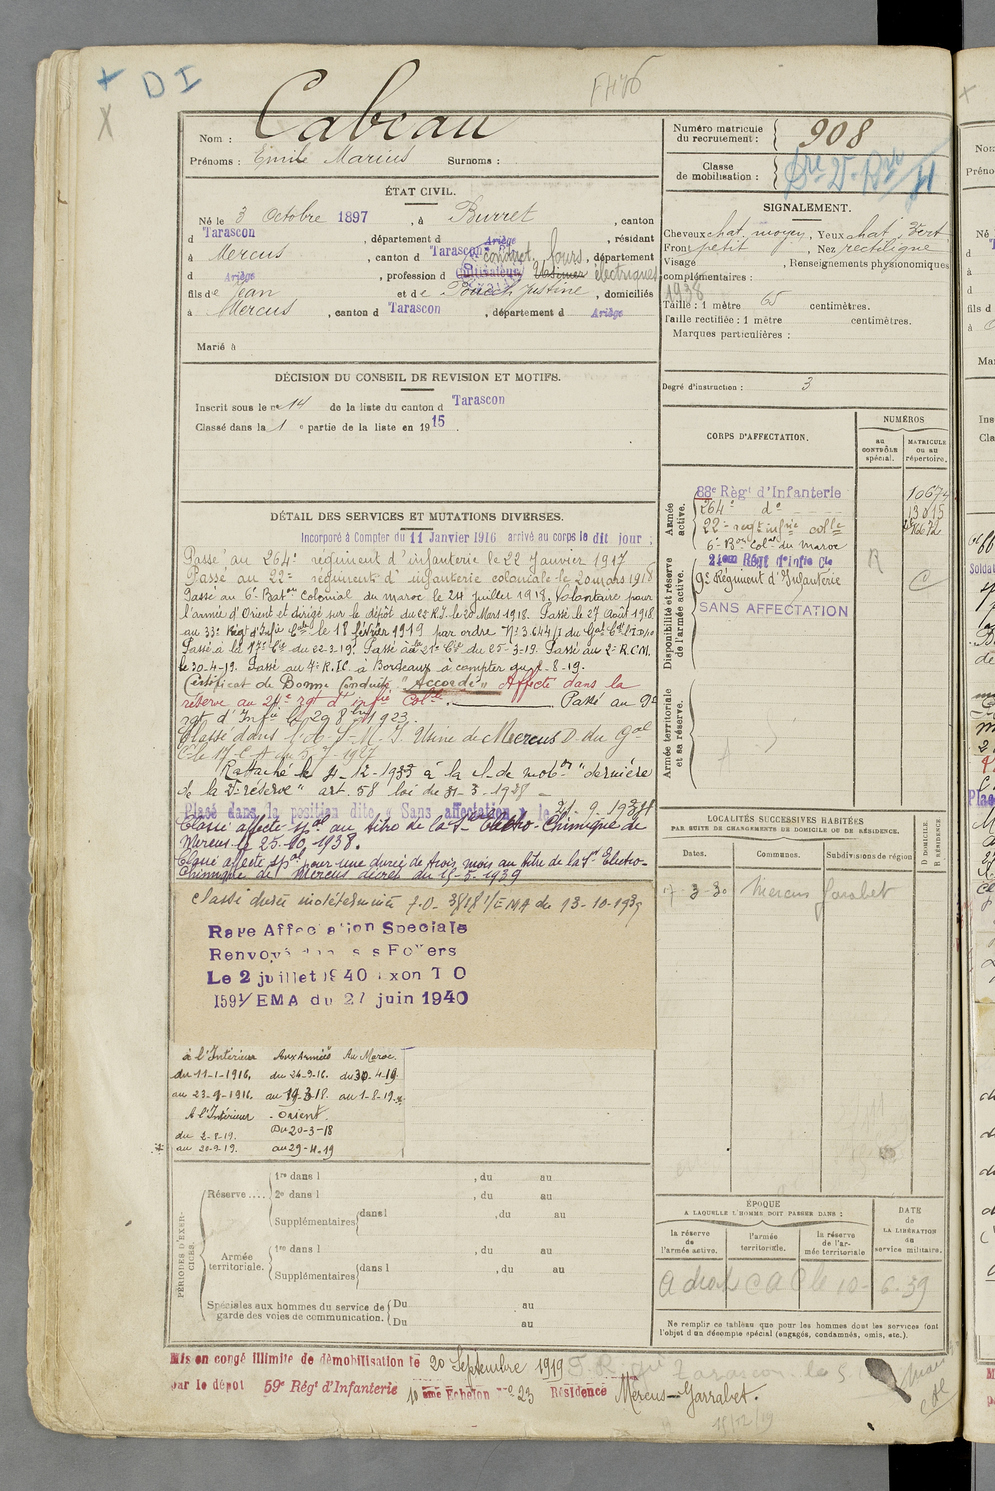 D I
Nom : Cabeau
Prénoms : Emile Marius Surnoms :
Numéro matricule du recrutement : 908
Classe de mobilisation :
ÉTAT CIVIL.
Né le 3 Octobre 1897, à Burret, canton
d Tarascon, département d Ariège, résidant
à Mercus, canton d Tarascon, département
d Ariège, profession d cultivateur électriques
fils de Jean et de Justine, domiciliés
à Mercus, canton d Tarascon, département d Ariège
Marié à
SIGNALEMENT.
Cheveux chat. moyen, Yeux chat. Vert
Front petit, Nez rectiligne
Visage , Renseignements physionomiques
complémentaires :
1938
Taille : 1 mètre 65 centimètres.
Taille rectifiée : 1 mètre centimètres.
Marques particulières :
Degré d'instruction : 3
DÉCISION DU CONSEIL DE REVISION ET MOTIFS.
Inscrit sous le nº 14 de la liste du canton d Tarascon
Classé dans la 1 e partie de la liste en 1915.
DÉTAIL DES SERVICES ET MUTATIONS DIVERSES.
Incorporé à Compter du 11 Janvier 1916 arrivé au corps le dit jour ;
Passé au 264e régiment d'infanterie le 22 Janvier 1917
Passé au 22e régiment d'infanterie coloniale le 20 mars 1918
Passé au 6e Baton Colonial du maroc le 24 juillet 1918. Volontaire pour
l'armée d'Orient et dirigé sur le dépôt du 22 R.I. le 20 Mars 1918. Passé le 27 Août 1918
au 33e Régt d'Infie Cale le 18 février 1919 par ordre Nº 3.644/1 du Gal
Passé à le 17e Cie du 22-3-19. Passé à la 21e Cie du 25-3-19. Passé au 2e R.C.M.
le 30-4-19. Passé au 4e R.I.C. à Bordeaux à compter du 2-8-19.
Certificat de Bonne Conduite "Accordé" Affecté dans la
réserve au 21e rgt d'infie Cole. Passé au 9e
rgt d'Infie le 29 8bre 1923.
Classé dans l'A.S.M.I. Usine de Mercus D. du Gal
C.le 17e C.A du 5.7.1927
Rattaché le 31-12-1935 à la cl. de mobon "dernière
de la 2e réserve" art. 58 loi du 31-3-1928
Placé dans la position dite « Sans affectation » le 21-9-1938
Classé affecté spal au titre de la Sté Electro-Chimique de
Mercus le 25-10-1938.
Classé affecté spal pour une durée de trois mois au titre de la Sté Electro-
Chimique de Mercus décret du 15-5-1939
Classé durée indéterminée J.O. 3818 1/EMA du 13-10-1939
Raye Affectation Speciale
Renvoyé dans ses Foyers
Le 2 juillet 1940 xon T O
1591/EMA du 27 juin 1940
à l'Intérieur Aux Armées Au Maroc.
du 11-1-1916. du 24-9-16. du 30-4-19
au 23-9-1916. au 19-3-18. au 1-8-19.
A l'Intérieur - Orient.
du 2-8-19. Du 20-3-18
au 20-9-19. au 29-4-19
CORPS D'AFFECTATION.
NUMÉROS
au CONTRÔLE spécial.
MATRICULE ou au répertoire.
Armée active.
88e Régt d'Infanterie 10674
264e dº 13015
22e regt infrie colle
6e Bon Colal du maroc
Disponibilité et réserve de l'armée active.
21em Régt d'Infie Cle
9e Régiment d'Infanterie
SANS AFFECTATION
R
Armée territoriale et sa réserve.
LOCALITÉS SUCCESSIVES HABITÉES
PAR SUITE DE CHANGEMENTS DE DOMICILE OU DE RÉSIDENCE.
Dates. Communes. Subdivisions de région
D DOMICILE. R RÉSIDENCE
3-30 Mercus Garabet
PÉRIODES D'EXERCICES.
Réserve .... 1re dans l , du au
2e dans l , du au
Supplémentaires dans l , du au
Armée territoriale. 1re dans l , du au
Supplémentaires dans l , du au
Spéciales aux hommes du service de garde des voies de communication. Du au
Du au
ÉPOQUE
A LAQUELLE L'HOMME DOIT PASSER DANS :
la réserve de l'armée active.
l'armée territoriale.
la réserve de l'armée territoriale
DATE de LA LIBÉRATION du service militaire.
A droit C A C le 10-6-39
Ne remplir ce tableau que pour les hommes dont les services font
l'objet d'un décompte spécial (engagés, condamnés, omis, etc.).
Mis en congé illimité de démobilisation le 20 Septembre 1919
par le dépôt 59e Régt d'Infanterie 10 ème Echelon nº 23 Résidence Mercus-Garrabet.